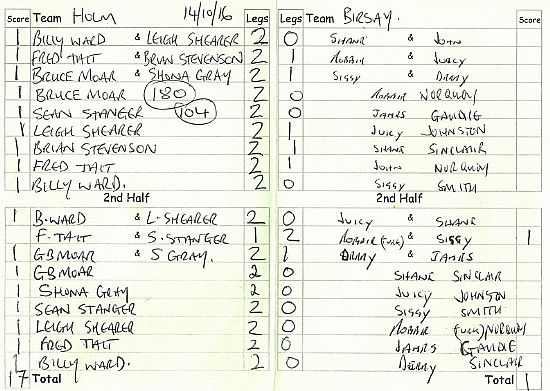 Score Team HOLM 14/10/16 Legs Legs Team BIRSAY. Score
1 BILLY WARD & LEIGH SHEARER 2 0 SHANE & JOHN
1 FRED TAIT & BRIAN STEVENSON 2 1 ROBBIE & JUICY
1 BRUCE MOAR & SHONA GRAY 2 1 SIGGY & DERRY
1 BRUCE MOAR 180 2 0 ROBBIE NORQUOY
1 SEAN STANGER 104 2 0 JAMES GAUDIE
1 LEIGH SHEARER 2 1 JUICY JOHNSTON
1 BRIAN STEVENSON 2 1 SHANE SINCLAIR
1 FRED TAIT 2 1 JOHN NORQUOY
1 BILLY WARD. 2 0 SIGGY SMITH
2nd Half 2nd Half
1 B. WARD & L. SHEARER 2 0 JUICY & SHANE
F. TAIT & S. STANGER 1 2 ROBBIE & SIGGY 1
1 GB MOAR & S GRAY. 2 1 DERRY & JAMES
1 GB MOAR 2 0 SHANE SINCLAIR
1 SHONA GRAY 2 0 JUICY JOHNSTON
1 SEAN STANGER 2 0 SIGGY SMITH
1 LEIGH SHEARER 2 0 ROBBIE NORQUOY
1 FRED TAIT 2 0 JAMES GAUDIE
1 BILLY WARD. 2 0 DERRY SINCLAIR
17 Total Total 1